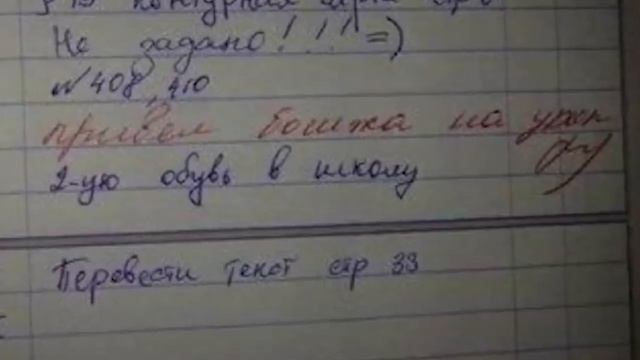 контурная карта стр 6
Не задано!!!=)
№408, 410
привёл бомжа на урок
2-ую обувь в школу
Перевести текст стр 33